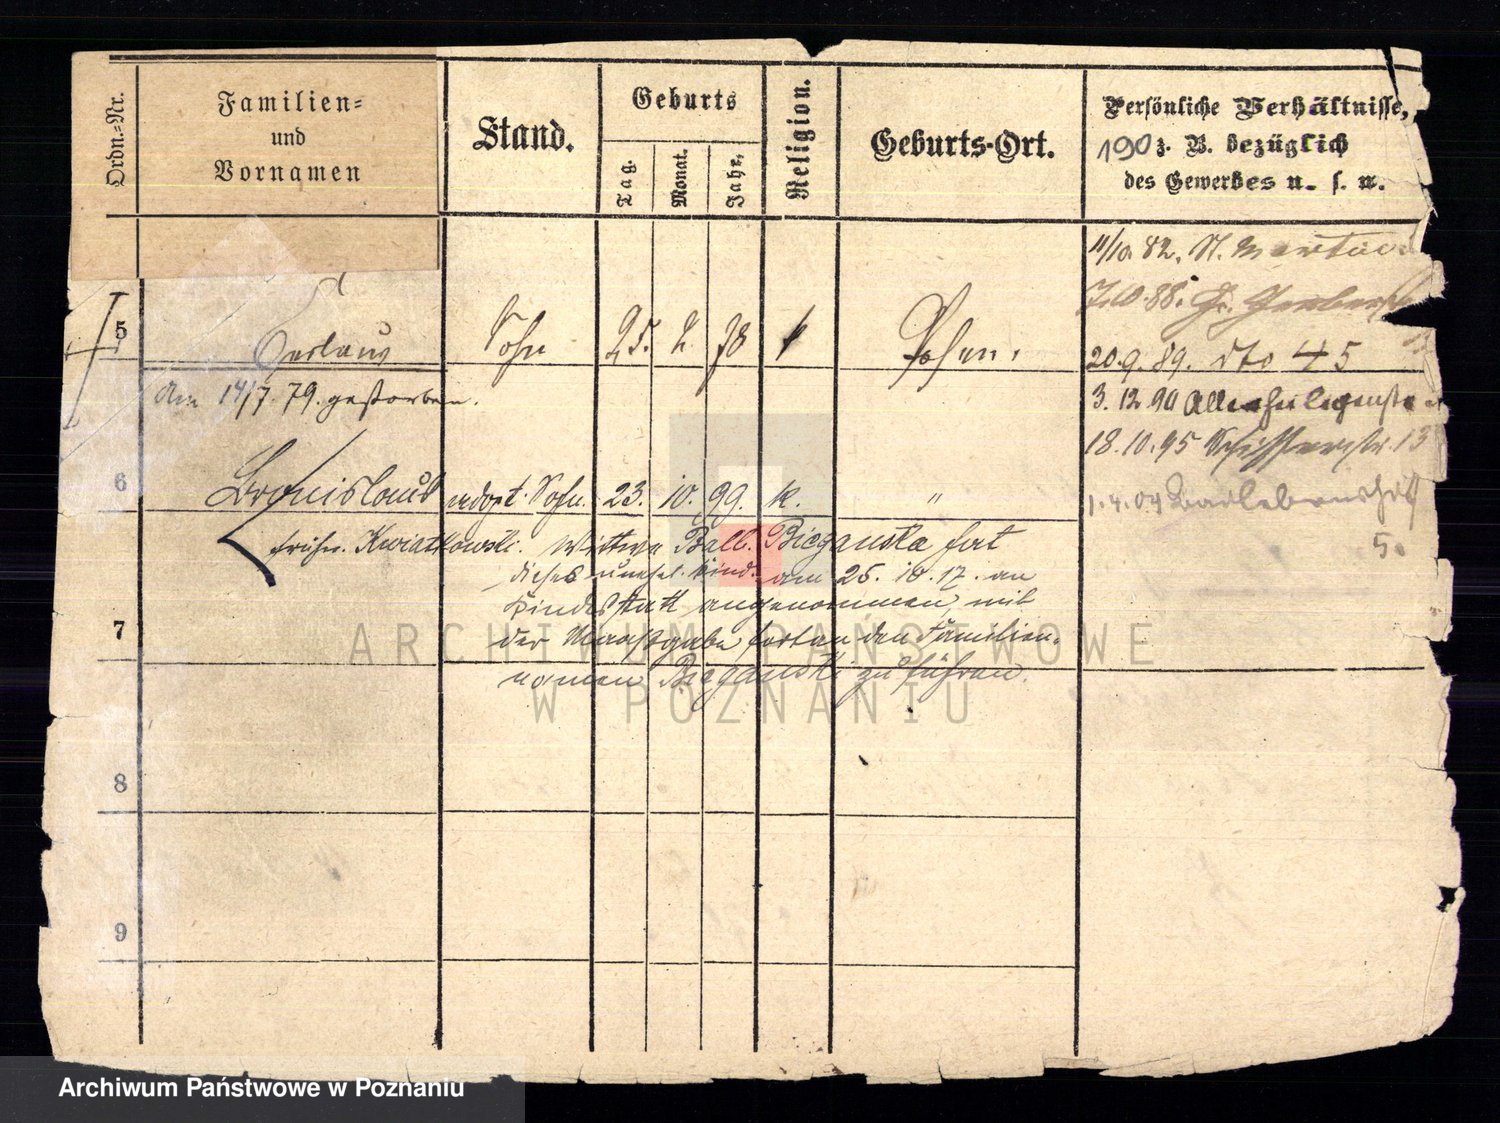 Ordn.-Nr.
Familien-
und
Vornamen
Stand.
Geburts
Tag.
Monat.
Jahr.
Religion.
Geburts-Ort.
Persönliche Verhältnisse,
190 z. B. bezüglich
des Gewerbes u. s. w.
11/10. 82. St. Martin
7.10.88. Gr. Gerberstr
20.9.89. dto 45
3. 12 90 Allerheiligenstr
18.10.95 Schifferstr. 13
1.4.04
5.
5 Sohn 25. 2. 78 k Posen.
am 14/7. 79. gestorben.
6 Bronislaus adopt. Sohn. 23. 10. 99. k. "
früher. Kwiatkowski. Wittwe Balb. Bieganska hat
dieses unehel. Kind am 25. 10. 17. an
Kindesstatt angenommen, mit
der Maaßgabe fortan den Familien-
namen Bieganski zu führen.
7
8
9
ARCHIWUM PAŃSTWOWE
W POZNANIU
Archiwum Państwowe w Poznaniu